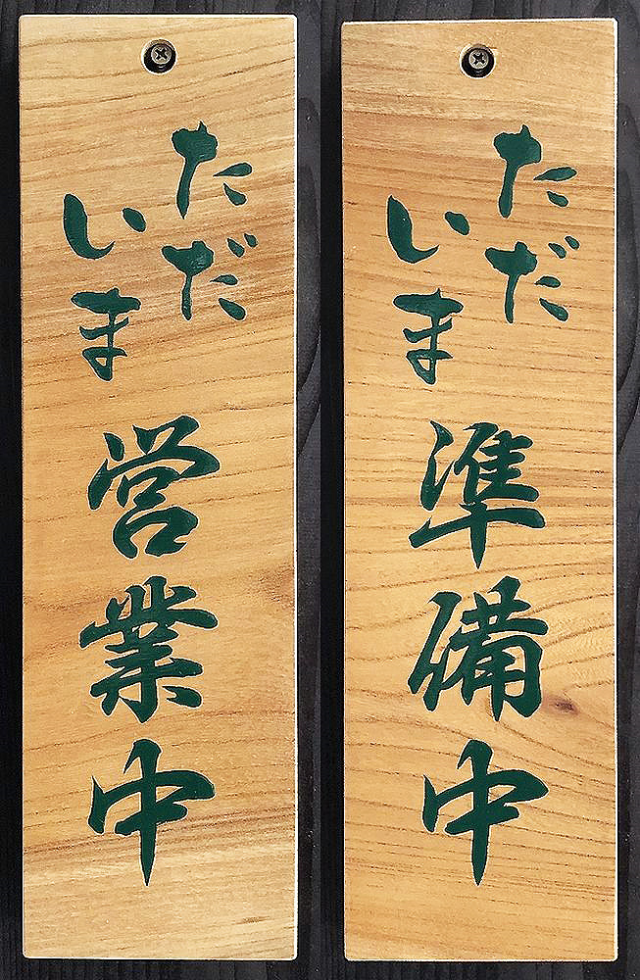 ただ
いま
営業中
ただ
いま
準備中